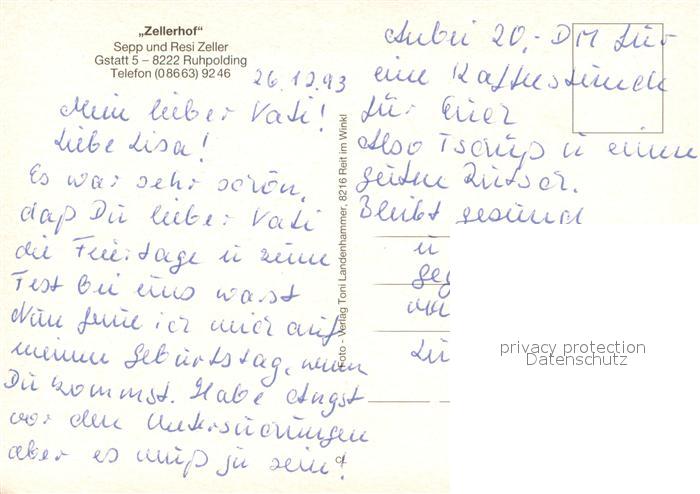 „Zellerhof“
Sepp und Resi Zeller
Gstatt 5 – 8222 Ruhpolding
Telefon (0 86 63) 92 46
26.12.93
Mein lieber Vati!
Liebe Lisa!
Es war sehr schön,
daß Du lieber Vati
die Feiertage u zum
Fest bei uns warst
Nun freue ich mich auf
meinen Geburtstag, wenn
Du kommst. Habe Angst
vor den Untersuchungen
aber es muß ja sein!
Foto - Verlag Toni Landenhammer, 8216 Reit im Winkl
Anbei 20,- DM für
eine Kaffeestunde
für Euch
Also Tschüß u einen
guten Rutsch.
Bleibt gesund
u
privacy protection
Datenschutz